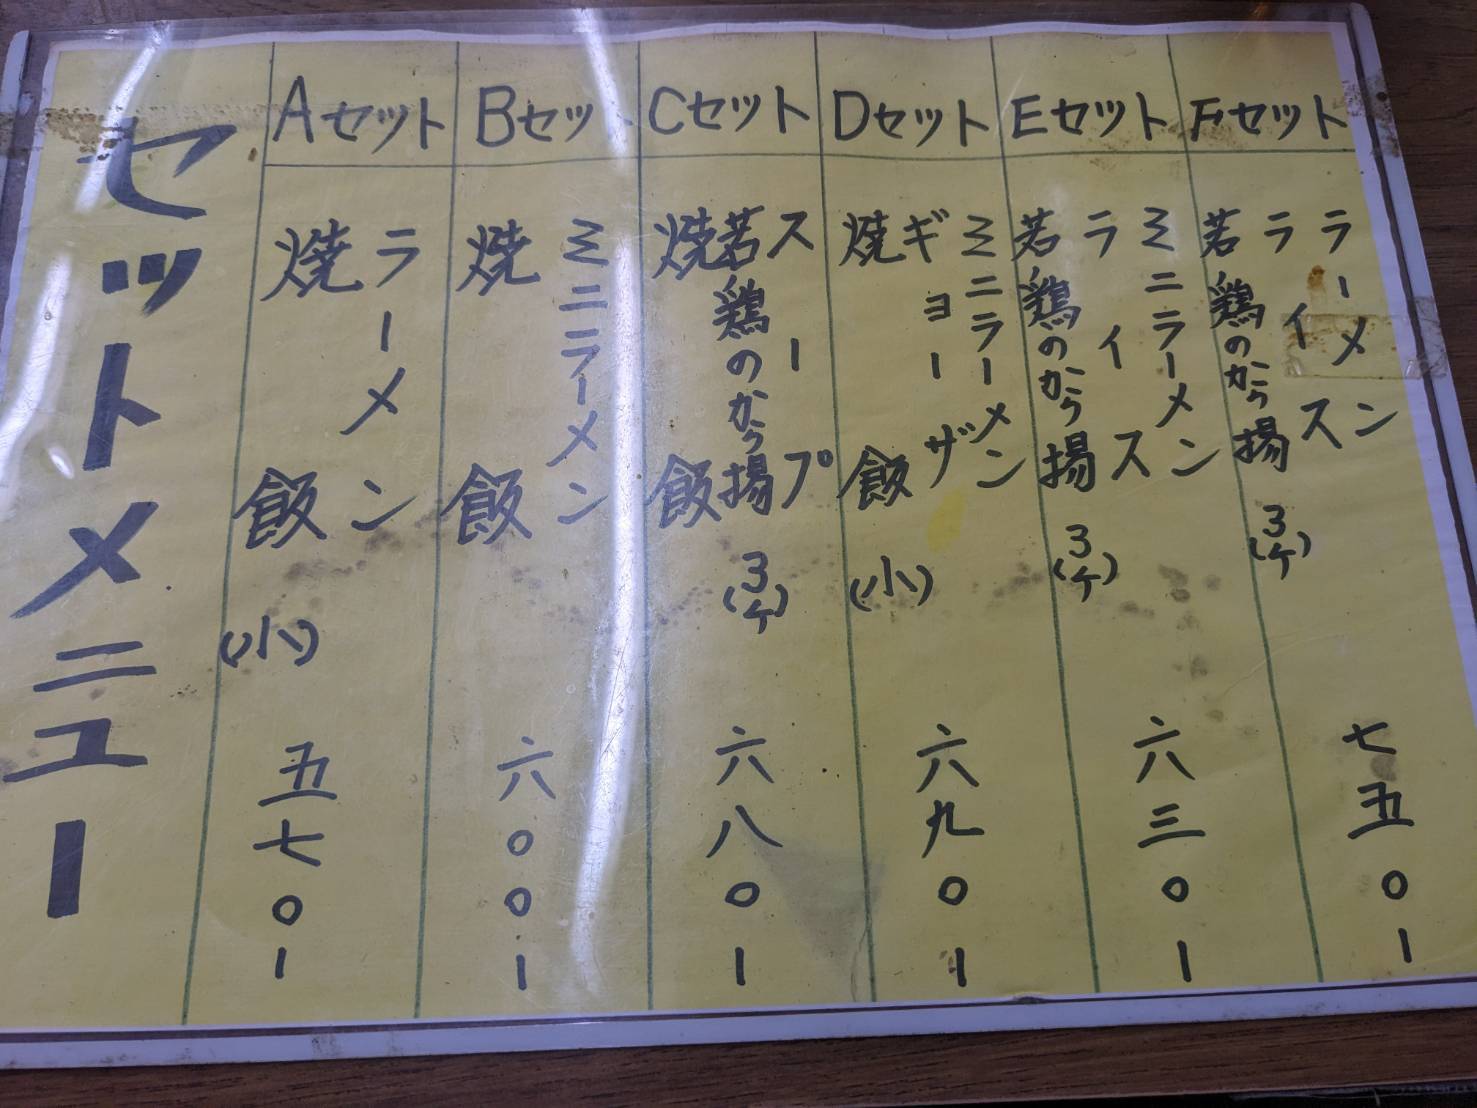 セットメニュー
Aセット
ラーメン
焼飯(小)
五七〇ー
Bセット
ミニラーメン
焼飯
六〇〇ー
Cセット
スープ
若鶏のから揚(3ヶ)
焼飯
六八〇ー
Dセット
ミニラーメン
ギョーザ
焼飯(小)
六九〇ー
Eセット
ミニラーメン
ライス
若鶏のから揚(3ヶ)
六三〇ー
Fセット
ラーメン
ライス
若鶏のから揚(3ヶ)
七五〇ー